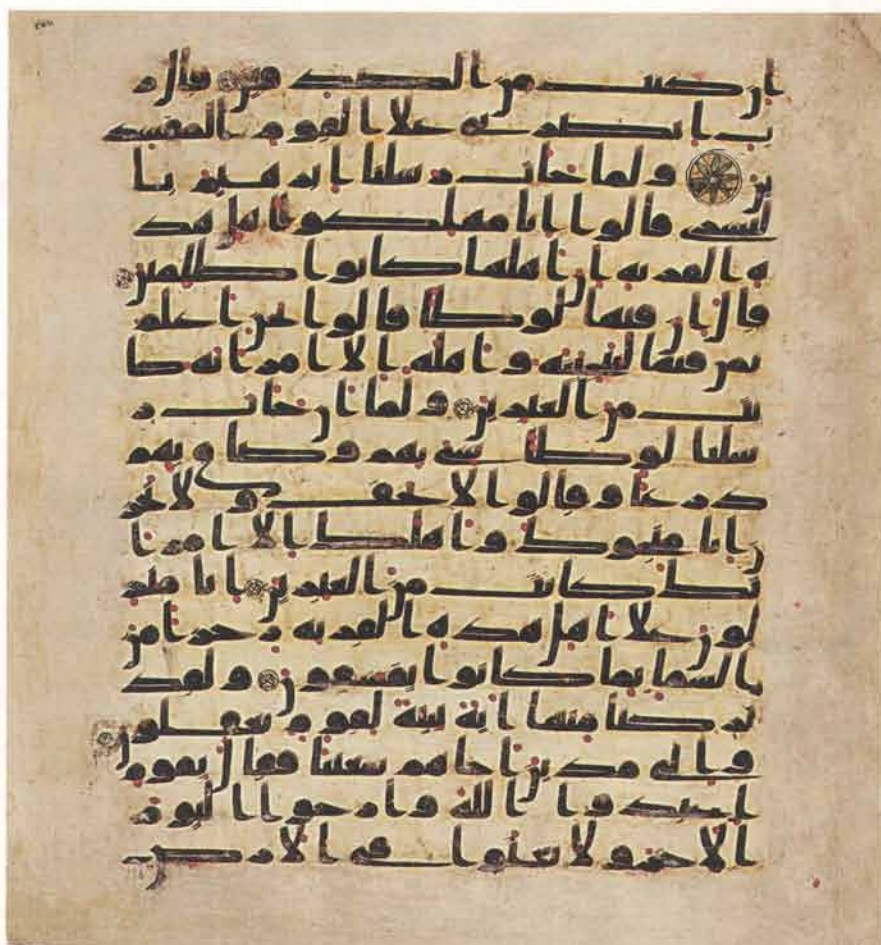 ان كنت من الصدقين قال ر
ب انصرني على القوم المفسد
ين ولما جات ر سلنا ابرهيم با
لبشرى قالوا انا مهلكوا اهل هذ
ه القرية ان اهلها كانوا ظلمين
قال ان فيها لوطا قالوا نحن اعلم
بمن فيها لننجينه واهله الا امراته كا
نت من الغبرين ولما ان جات ر
سلنا لوطا سي بهم وضاق بهم
ذرعا وقالوا لا تخف ولا تحز
ن انا منجوك واهلك الا امرا
تك كانت من الغبرين انا منز
لون على اهل هذه القرية رجزا من
السما بما كانوا يفسقون ولقد
تركنا منها اية بينة لقوم يعقلون
والى مدين اخاهم شعيبا فقال يقوم
اعبدوا الله وارجوا اليوم
الاخر ولا تعثوا في الارض